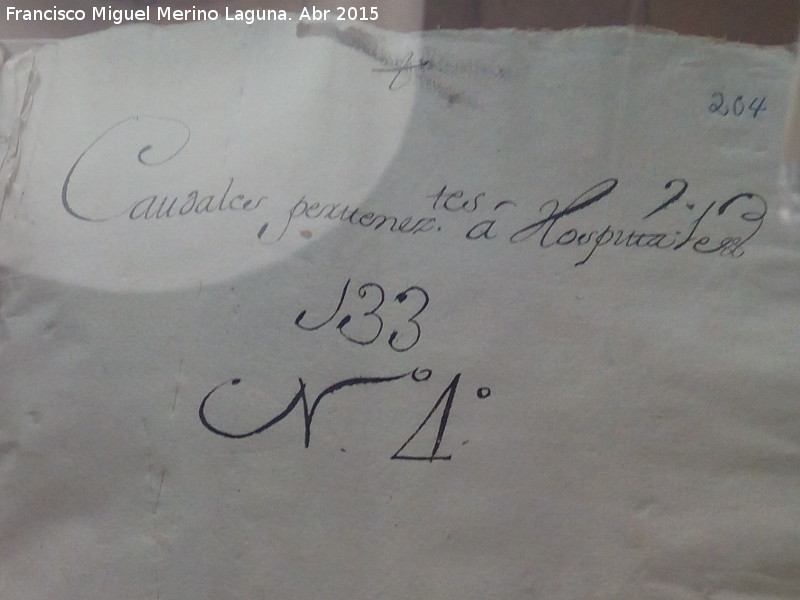 Francisco Miguel Merino Laguna. Abr 2015
204
Caudales pertenez.tes á
133
N.º 1º